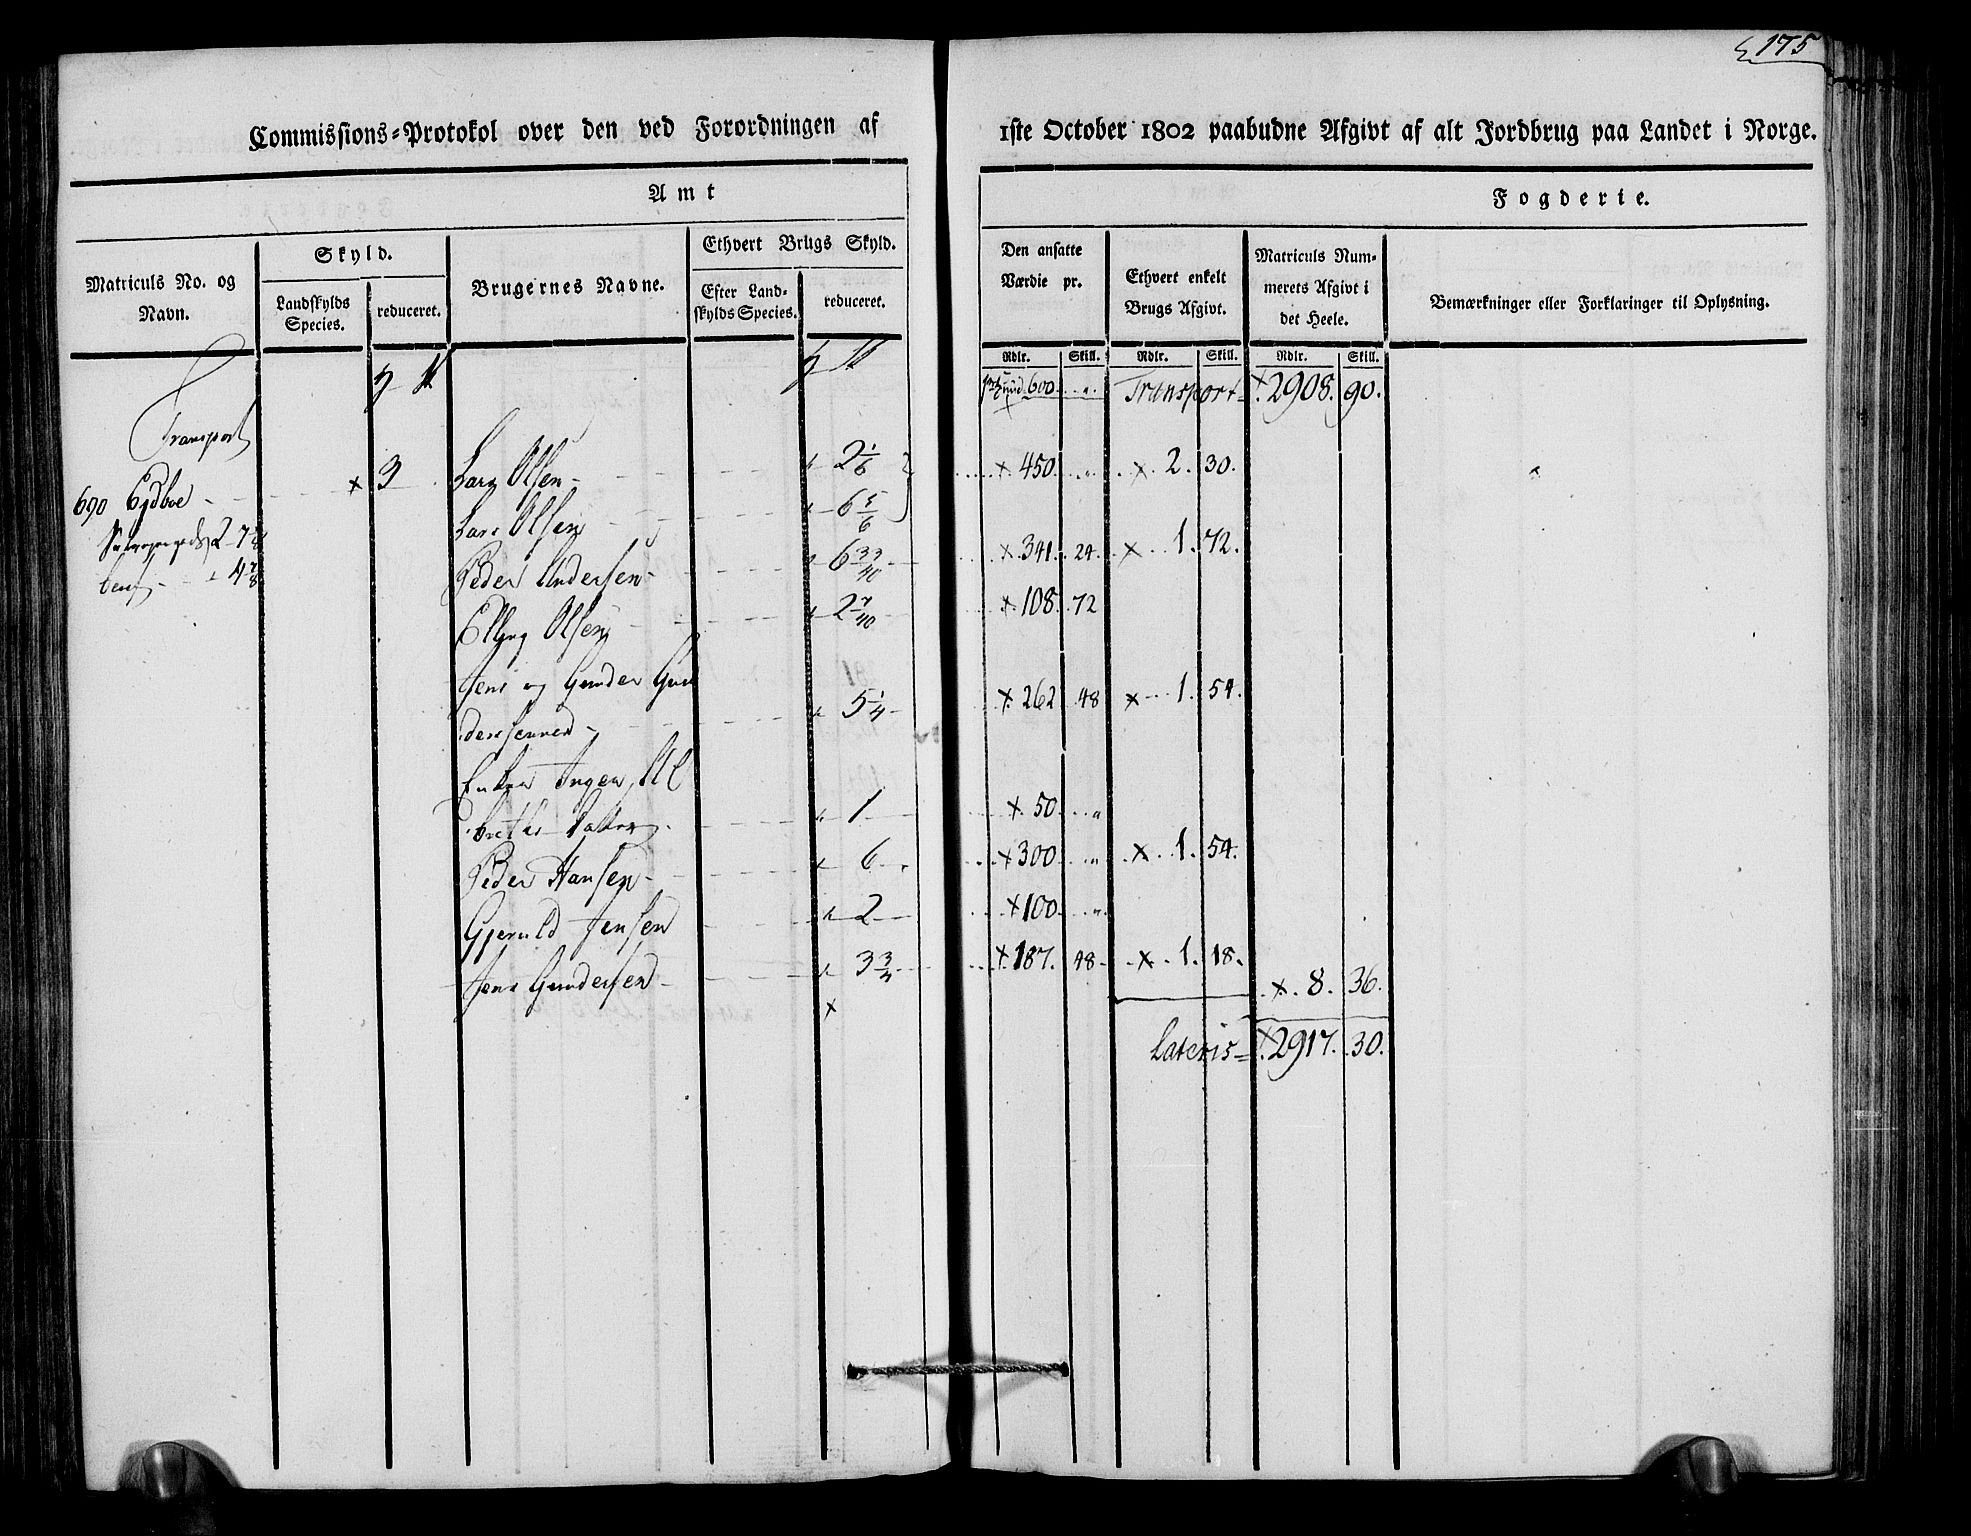 175
Commissions-Protokol over den ved Forordningen af 1ste October 1802 paabudne Afgivt af alt Jordbrug paa Landet i Norge.
Amt Fogderie.
Matriculs No. og Navn. Skyld. Landskylds Species. reduceret. Brugernes Navne. Ethvert Brugs Skyld. Efter Landskylds Species. reduceret. Den ansatte Værdie pr. Ethvert enkelt Brugs Afgivt. Matriculs Nummerets Afgivt i det Heele. Bemærkninger eller Forklaringer til Oplysning.
Rdlr. Skill. Rdlr. Skill. Rdlr. Skill.
600 Transport 2908. 90.
Transport
690 Eydboe 3 Lars Olsen 2 1/6 450. 2. 30.
Lars Olsen 6 5/6
2 7/8
Peder Andersen 6 33/40 341. 24. 1. 72.
4 7/8
Ellling Olsen 2 7/40 108. 72
Jens og Gunder Gun
dersenner 5 1/4 262 48 1. 54.
Enken Inger
1 50
Peder Hansen 6 300 1. 54.
Gjeruld Jensen 2 100.
Jens Gundersen 3 3/4 187. 48 1. 18.
8. 36.
Lateris 2917. 30.